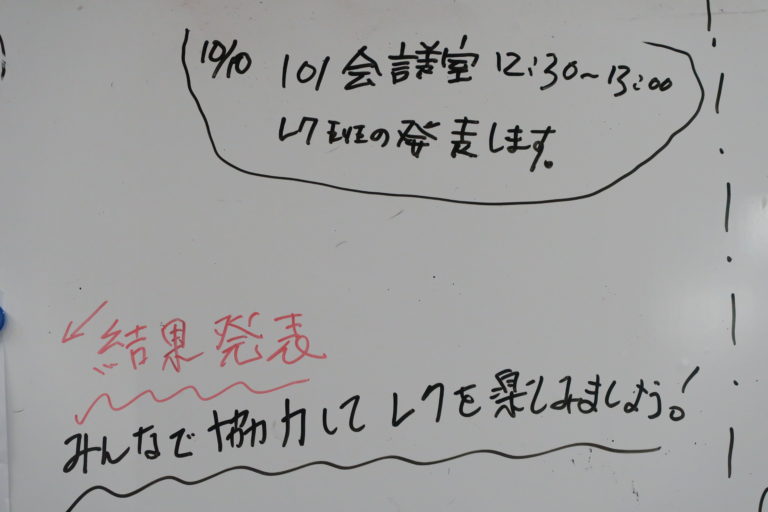 10/10 101会議室 12:30～13:00
レク班の発表します。
結果発表
みんなで協力してレクを楽しみましょう!